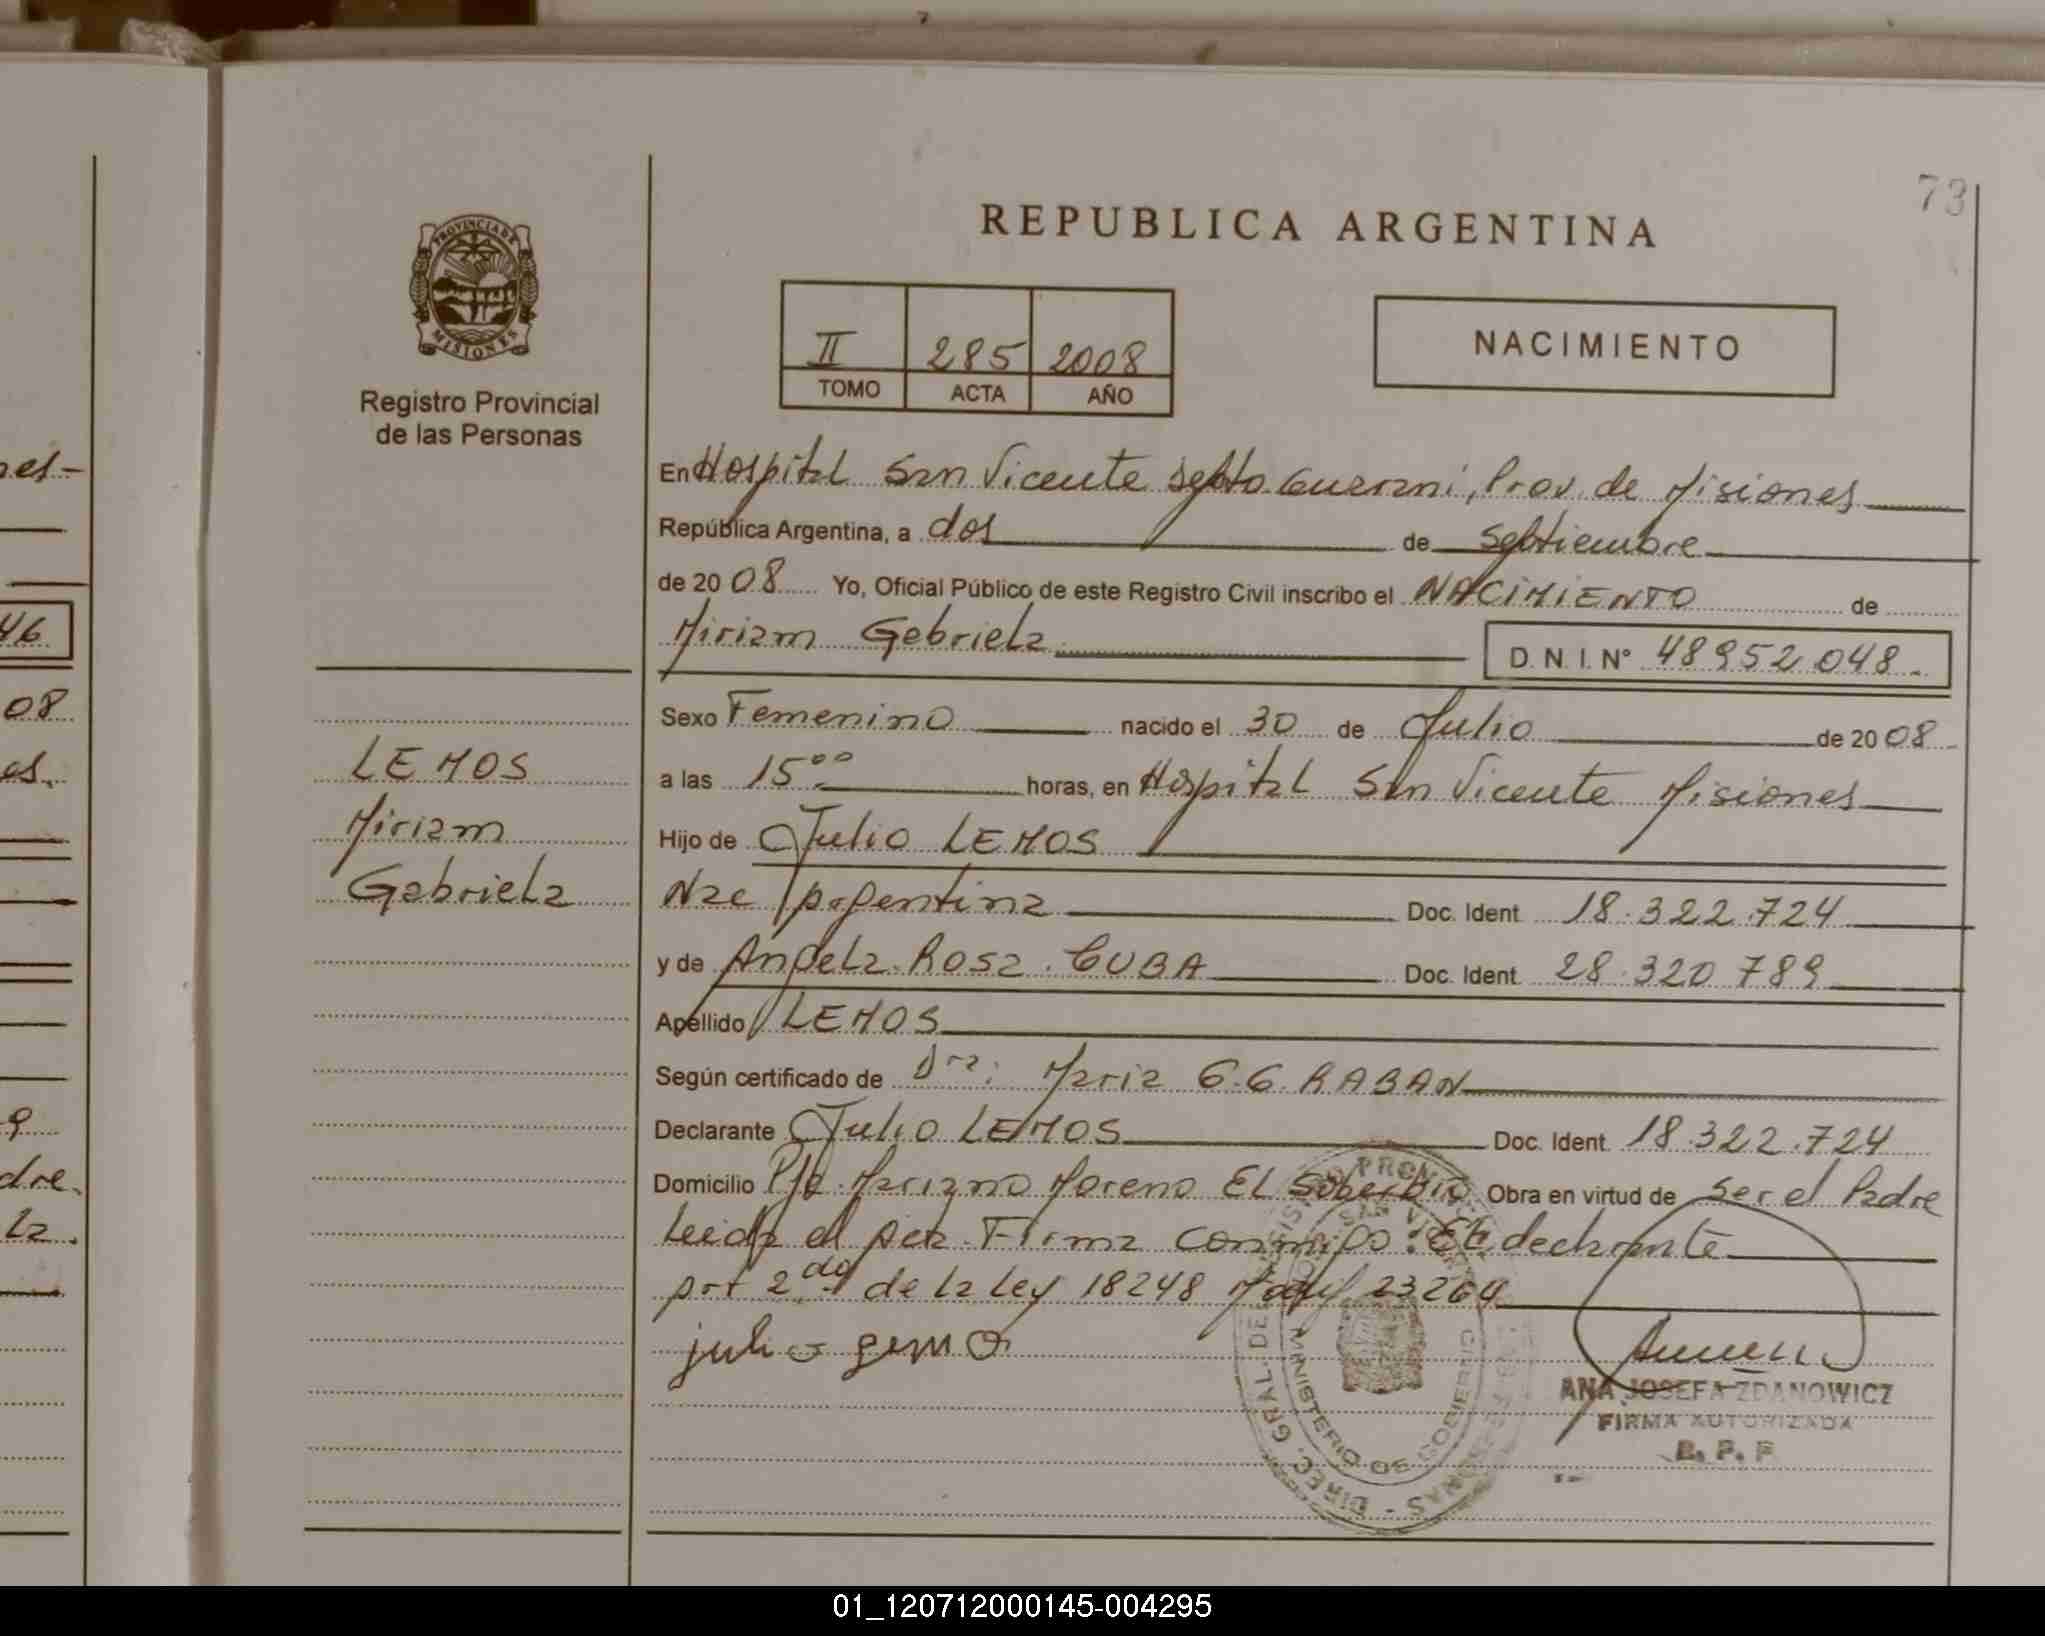 73
REPUBLICA ARGENTINA
PROVINCIA DE
MISIONES
Registro Provincial
de las Personas
II 285 2008
TOMO ACTA AÑO
NACIMIENTO
En Hospital San Vicente Depto. Guarani, Prov. de Misiones
República Argentina, a dos de Septiembre
de 20 08 Yo, Oficial Público de este Registro Civil inscribo el NACIMIENTO de
Miriam Gabriela D.N.I. N° 48952048
Sexo Femenino nacido el 30 de Julio de 20 08
a las 15⁰⁰ horas, en Hospital San Vicente Misiones
Hijo de Julio LEMOS
Nac Argentina Doc. Ident. 18.322.724
y de Angela Rosa CUBA Doc. Ident. 28.320789
Apellido LEMOS
Según certificado de Dra: Maria G.G. RABAN
Declarante Julio LEMOS Doc. Ident. 18.322.724
Domicilio Pje. Mariano Moreno El Soberbio Obra en virtud de Ser el Padre
Leida el acta Firma conmigo: El declarante
Art 2do de la Ley 18248 Modif 23264
julio
ANA JOSEFA ZDANOWICZ
FIRMA AUTORIZADA
LEMOS
Miriam
Gabriela
MINISTERIO DE GOBIERNO
46
08
dre.
01_120712000145-004295